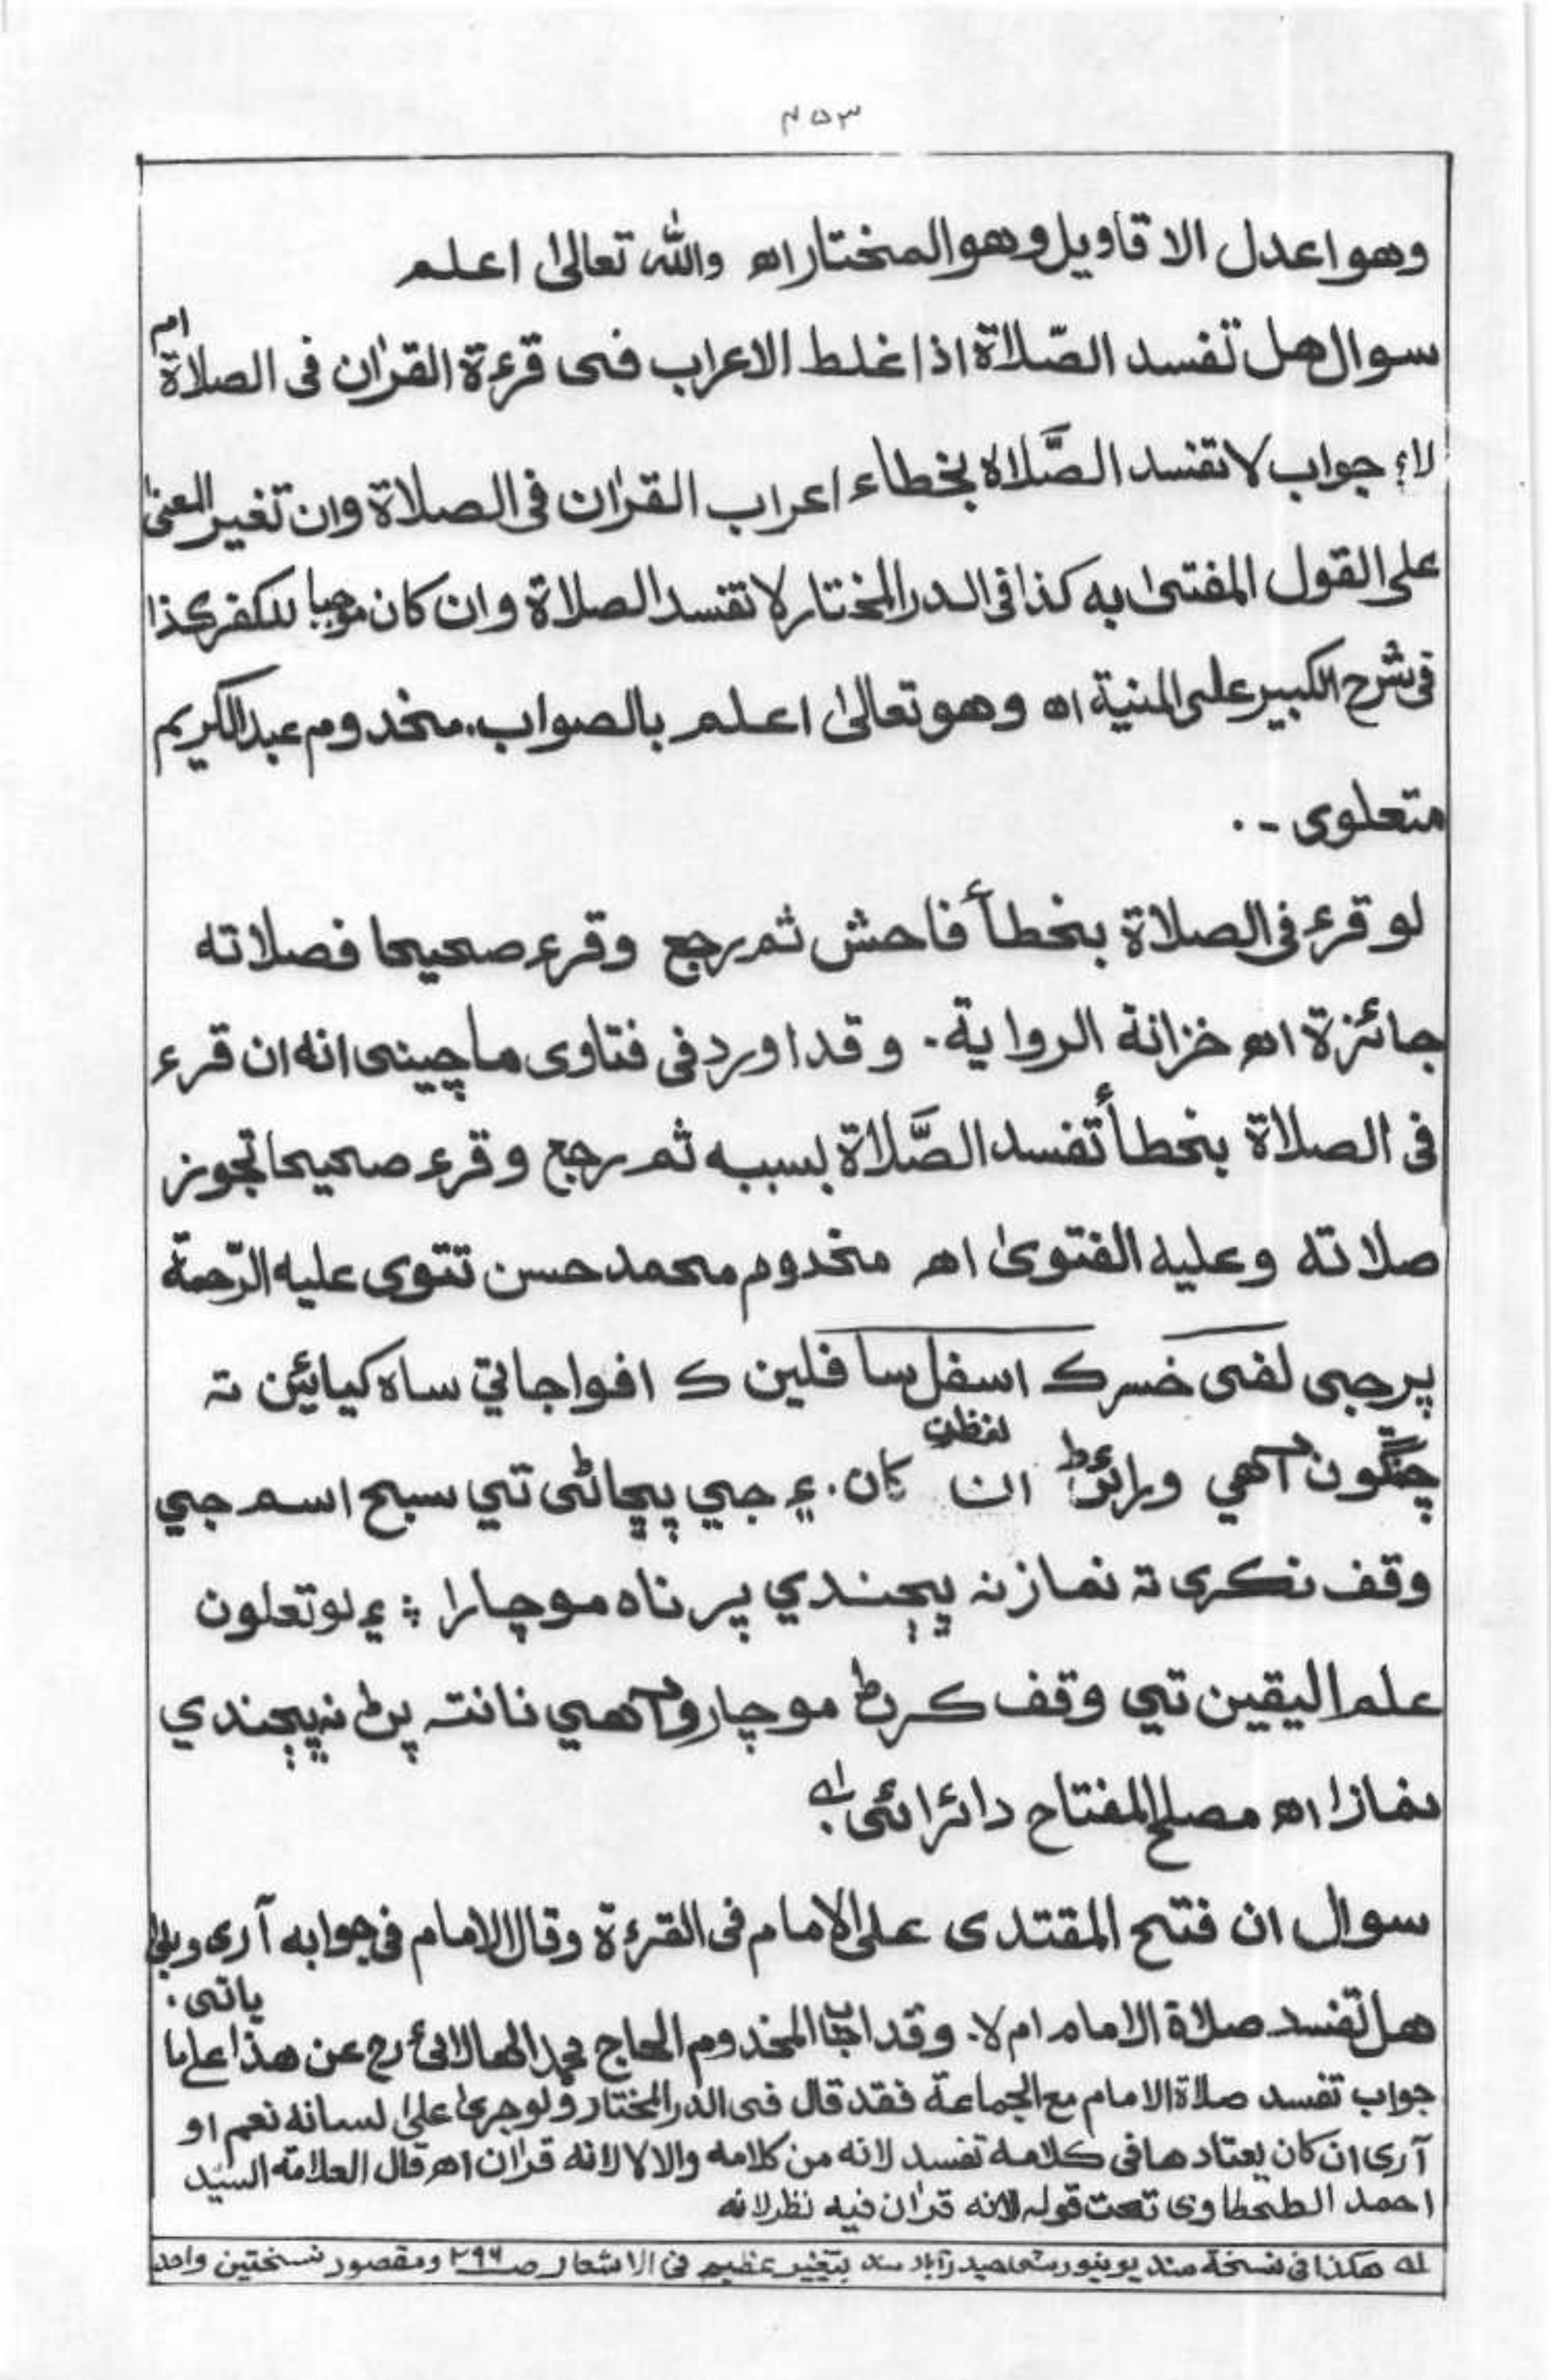 ۴۵۳
وهو اعدل الاقاويل وهو المختار اھ والله تعالىٰ اعلم
سوال هل تفسد الصّلاة اذا غلط الاعراب فى قرءة القرٰان فى الصلاة ام
لا؛ جواب لا تفسد الصَّلاة بخطاء اعراب القرٰان فى الصلاة وان تغير المعنىٰ
على القول المفتىٰ به كذا فى الدر المختار لا تفسد الصلاة وان كان موجبا للكفر كذا
فى شرح الكبير على المنية اھ وهو تعالىٰ اعلم بالصواب. مخدوم عبد الكريم
متعلوى ـ . .
لو قرء فى الصلاة بخطأء فاحش ثم رجع وقرء صحيحا فصلاته
جائزة اھ خزانة الرواية. وقد اورد فى فتاوى ماچينى انه ان قرء
فى الصلاة بخطأء تفسد الصَّلاة بسببه ثم رجع وقرء صحيحا تجوز
صلاته وعليه الفتوىٰ اھ مخدوم محمد حسن تتوى عليه الرّحمة
پر جى لفى خسر ک اسفل سافلين ک افواجا تي ساه کيائين تہ
چڱون آهي ورائڻ ان لفظن کان. ۽ جي ڀڃاڻى تي سبح اسم جي
وقف نکرى تہ نماز نہ ڀڄندي پر ناه موچارا ؛ ۽ لو تعلون
علم اليقين تي وقف ڪرڻ موچارو آهي نانتہ پڻ نہ ڀڄندي
نمازا اھ مصلح المفتاح دائرائى لہ
سوال ان فتح المقتدى على الامام فى القرءة وقال الامام فى جوابه آرى وبلىٰ
هل تفسد صلاة الامام ام لا. وقد اجاب المخدوم الحاج محمد الهالائى رح عن هذا على ما ياتى.
جواب تفسد صلاة الامام مع الجماعة فقد قال فى الدر المختار ولو جرىٰ علىٰ لسانه نعم او
آرى ان كان يعتادها فى كلامه تفسد لانه من كلامه والا لا لانه قرٰان اھ قال العلامة السيّد
احمد الطحطاوى تحت قوله لانه قرٰان فيه نظر لانه
لہ هكذا فى نسخة سند يونيورسٹى حيدرآباد سند بتغيير عظيم فى الاشعار صـ ۲۹۶ ومقصود نسختين واحد